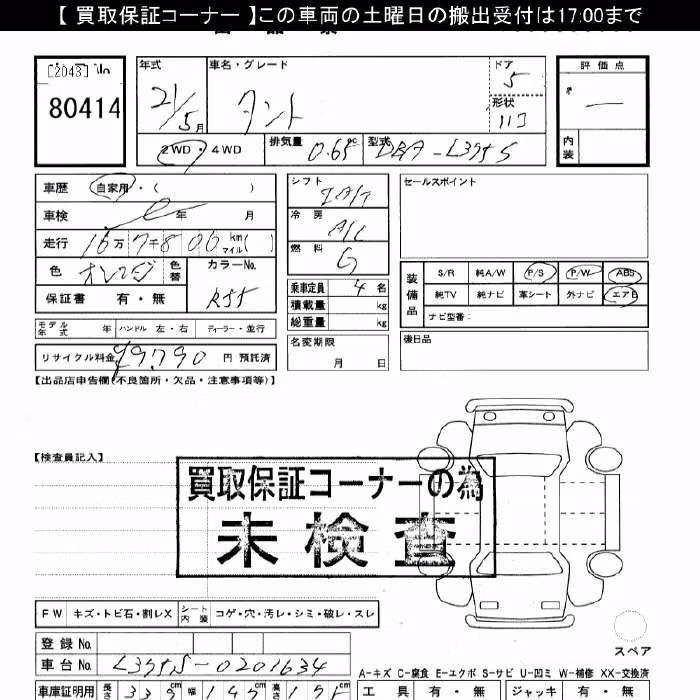 【 買取保証コーナー 】この車両の土曜日の搬出受付は17:00まで
80414
年式 21/5月
車名・グレード タント
ドア 5
形状
評価点 —
内装
2WD・4WD
排気量 0.65 cc
型式 DBA-L375S
車歴 自家用・( )
車検 年 月
走行 16万7800km マイル( )
色 オレンジ 色替
カラーNo. R55
保証書 有・無
モデル年式 年 ハンドル 左・右 ディーラー・並行
リサイクル料金 ¥9,790 円 預託済
シフト IAT
冷房 A/C
燃料 G
乗車定員 4 名
積載量 kg
総重量 kg
名変期限 月 日
セールスポイント
装備品 S/R 純A/W P/S P/W ABS
純TV 純ナビ 革シート 外ナビ エアB
ナビ型番:
後日品
【出品店申告欄(不良箇所・欠品・注意事項等)】
【検査員記入】
買取保証コーナーの為
未検査
FW キズ・トビ石・割レX シート内装 コゲ・穴・汚レ・シミ・破レ・スレ
スペア
登録 No.
車台 No. L375S-0201634
A-キズ C-腐食 E-エクボ S-サビ U-凹ミ W-補修 XX-交換済
車庫証明用 長さ 339cm 幅 147cm 高さ 175cm
工具 有・無 ジャッキ 有・無